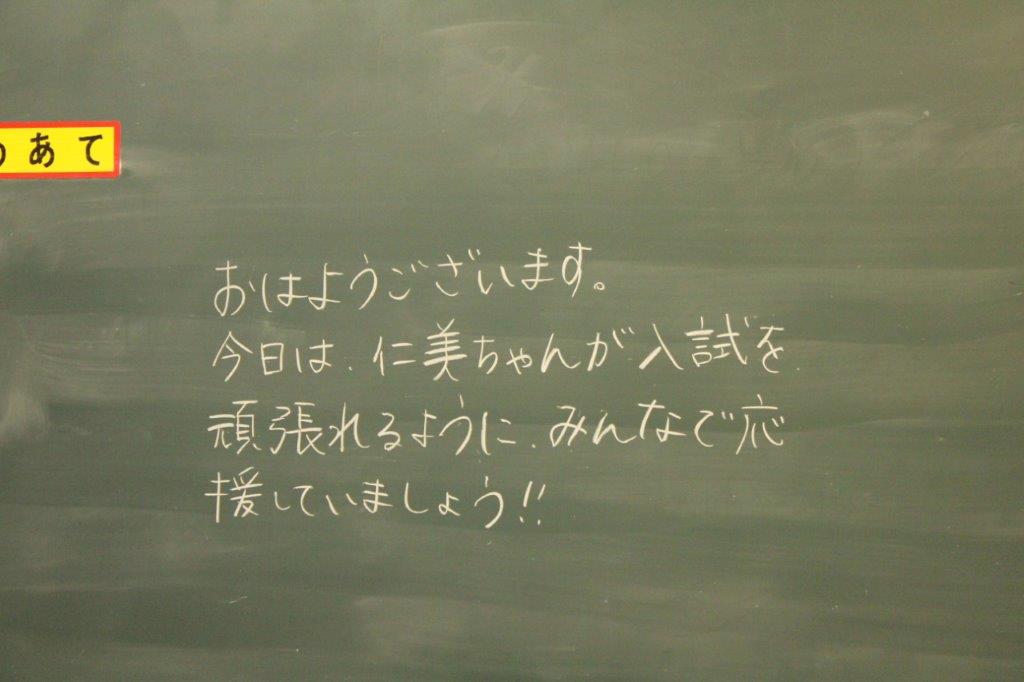 あて
おはようございます。
今日は、仁美ちゃんが入試を
頑張れるように、みんなで応
援していましょう!!